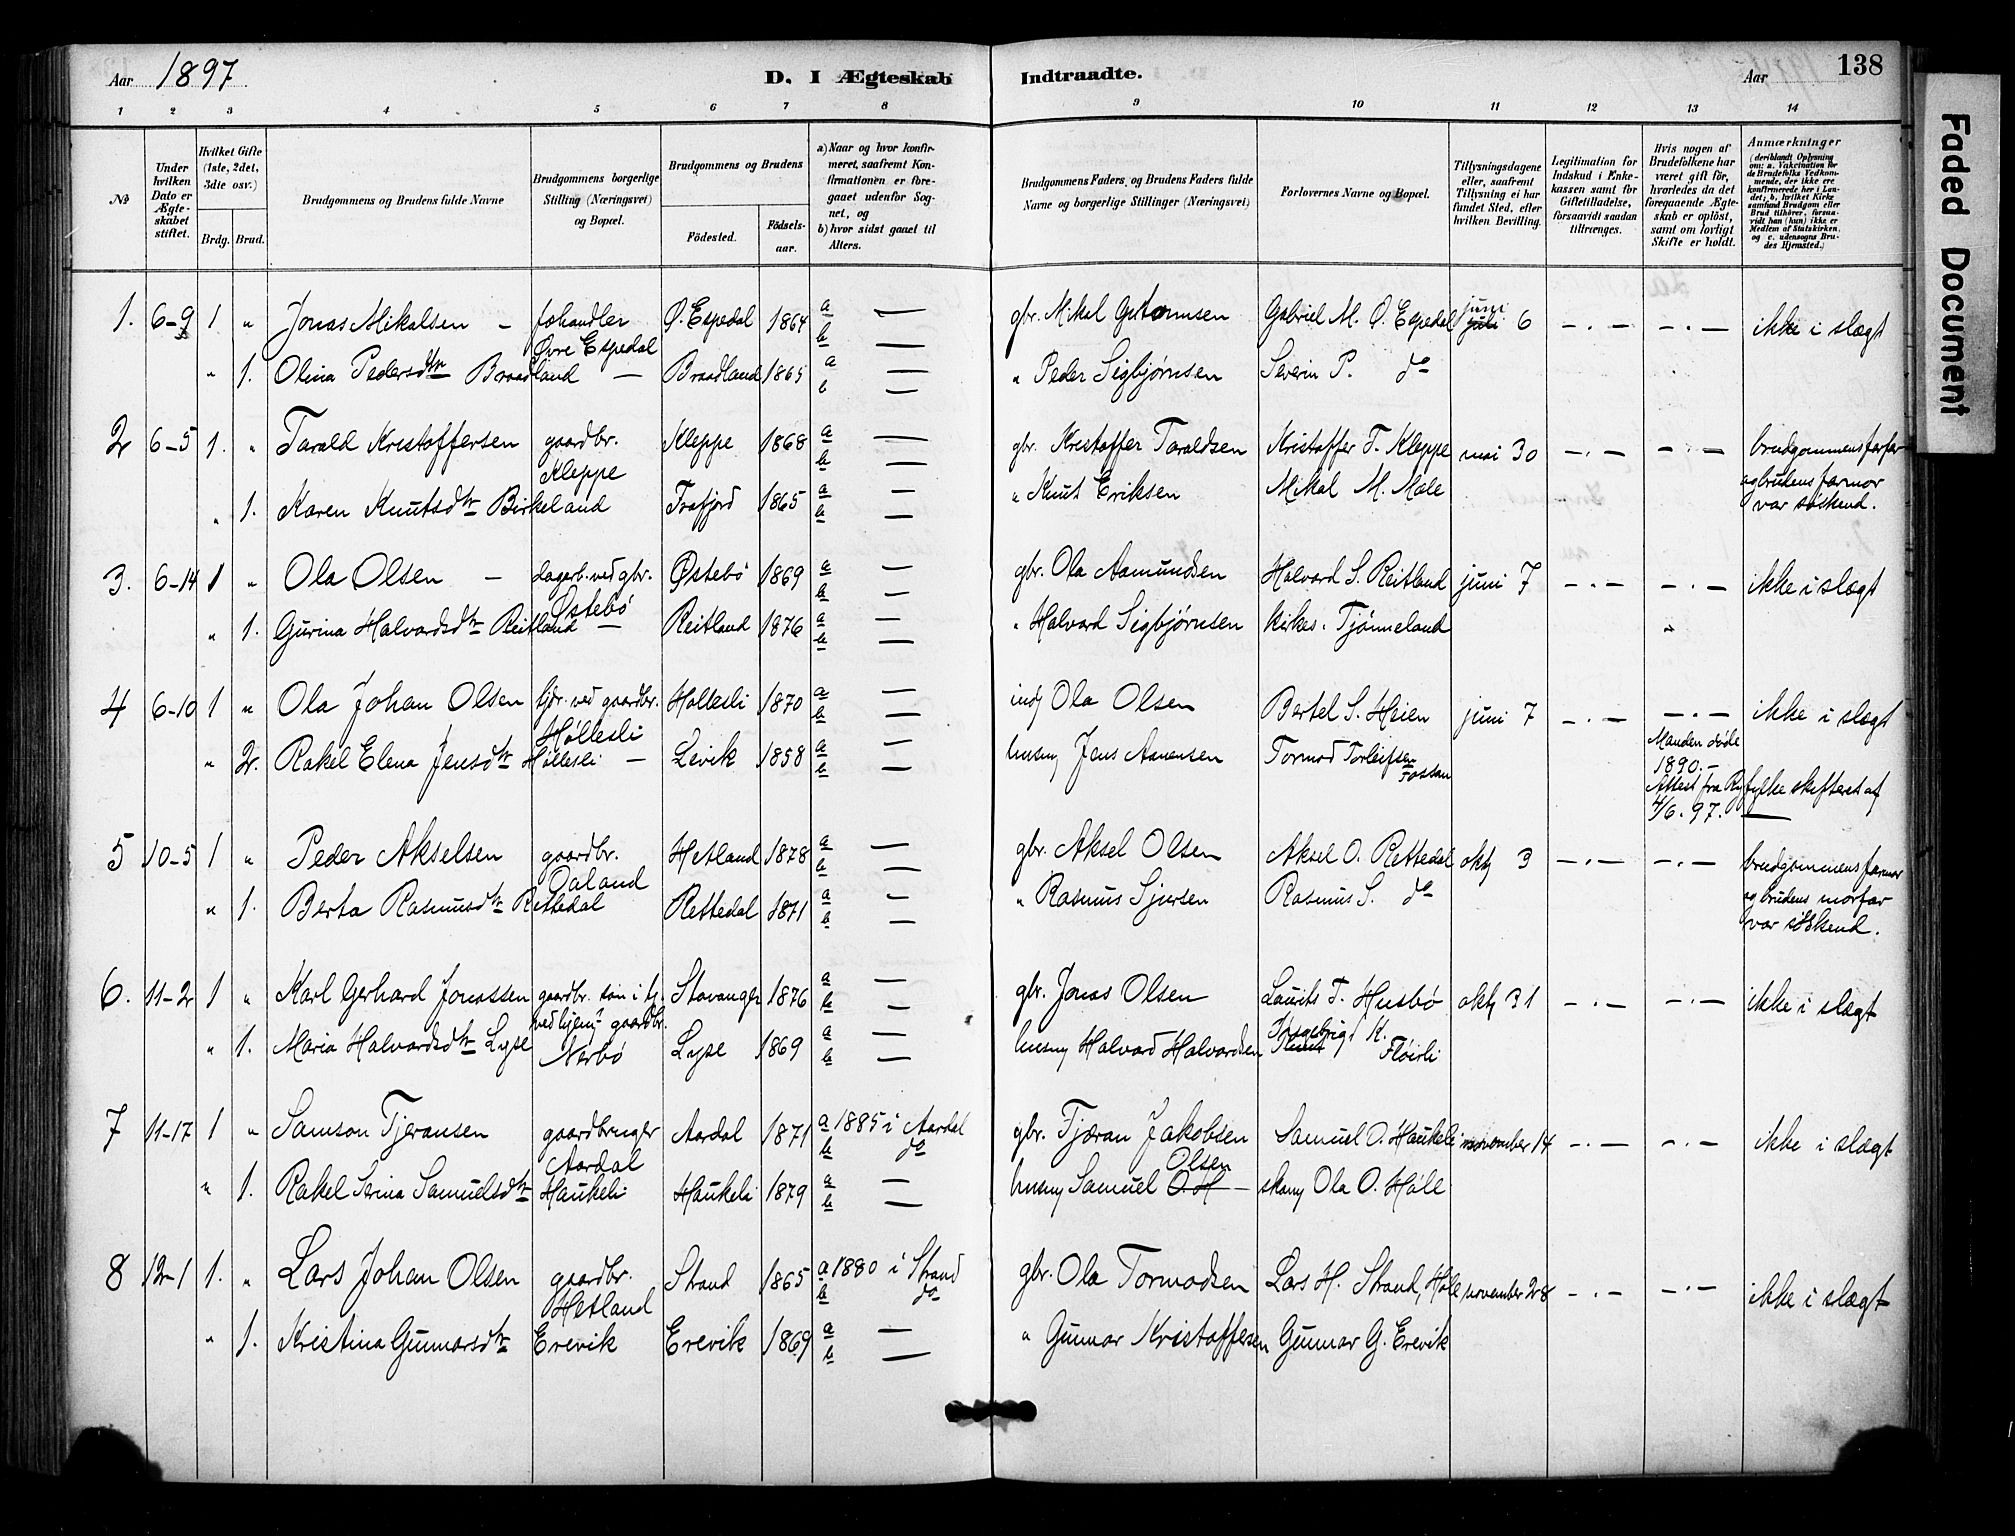 Aar 1897
D. I Ægteskab Indtraadte.
Aar 138
Faded Document
1 2 3 4 5 6 7 8 9 10 11 12 13 14
№
Under hvilken Dato er Ægteskabet stiftet.
Hvilket Gifte (1ste, 2det, 3die osv.)
Brdg. Brud.
Brudgommens og Brudens fulde Navne
Brudgommens borgerlige Stilling (Næringsvei) og Bopæl.
Brudgommens og Brudens
Födested. Födselsaar.
a) Naar og hvor konfirmeret, saafremt Konfirmationen er foregaaet udenfor Sognet, og
b) hvor sidst gaaet til Alters.
Brudgommens Faders og Brudens Faders fulde Navne og borgerlige Stillinger (Næringsvei)
Forlovernes Navne og Bopæl.
Tillysningsdagene eller, saafremt Tillysning ei har fundet Sted, efter hvilken Bevilling.
Legitimation for Indskud i Enkekassen samt for Giftetilladelse, forsaavidt saadan tiltrænges.
Hvis nogen af Brudefolkene har været gift för, hvorledes da det foregaaende Ægteskab er oplöst, samt om lovligt Skifte er holdt.
Anmærkninger (deriblandt Oplysning om: a. Vakcination for de Brudefolks Vedkommende, der ikke ere konfirmerede her i Landet; b. hvilket Kirkesamfund Brudgom eller Brud tilhörer, forsaavidt han (hun) ikke er Medlem af Statskirken, og c. udensogns Brudes Hjemsted.)
1. 6-9 1 " Jonas Mikalsen – Ø. Espedal 1864 a — gbr. Mikal Gabriel M. Ø. Espedal juni 6 –.– –.– ikke i slægt
Øvre Espedal b —
" 1. Olina Pedersdtr Braadland – Braadland 1865 a — " Peder Sigbjørnsen Severin P. do
b —
2 6-5 1. " Tarald Kristoffersen gaardbr. Kleppe 1868 a — gbr. Kristoffer Taraldsen Kristoffer T. Kleppe mai 30 –.– –.– brudgommens farfar
Kleppe b — og brudens farmor
" 1. Karen Knutsdtr Birkeland Frafjord 1865 a — " Knut Eriksen Mikal M. Møle var søskend.
b —
3. 6-14 1 " Ola Olsen – dagarb. ved gbr. Østebö 1869 a — gbr. Ola Aamundsen Halvard S. Reitland juni 7 –.– –.– ikke i slægt
Østebö b —
" 1. Gurina Halvardsdtr Reitland Reitland 1876 a — " Halvard Sigbjørnsen kirkes. Tjønneland "
b —
4 6-10 1 " Ola Johan Olsen tjdr. ved gaardbr. Hollesli 1870 a — indj Ola Olsen Bertel S. Heien juni 7 –.– –.– ikke i slægt
Höllesli b —
" 2. Rakel Elena Jensdtr Höllesli – Levik 1858 a — husm Jens Aanensen Tormod Torleifsen Fossan Manden døde
b — 1890. –
Attest fra Ryfylke skifteret af
4/6. 97. —
5 10-5 1 " Peder Akselsen gaardbr. Hetland 1878 a — gbr. Aksel Olsen Aksel O. Rettedal okt 3 –.– –.– brudgommens farmor
Oaland b — og brudens morfar
" 1. Berta Rasmusdtr Rettedal Rettedal 1871 a — " Rasmus Sjursen Rasmus S. do var søskend.
b —
6. 11-2 1 " Karl Gerhard Jonassen gaardbr. søn i tj. Stavanger 1876 a — gbr. Jonas Olsen Laurits T. Husbö okt 31 –.– –.– ikke i slægt
ved hjem gaardbr. b —
" 1. Maria Halvardsdtr Lyse Nerbö Lyse 1869 a — husm Halvard Halvardsen Ingebrigt K. Flöirli
b —
7 11-17 1 " Samson Tjeransen gaardbruger Aardal 1871 a 1885 i Aardal gbr. Tjæran Jakobsen Samuel O. Haukeli november 14 –.– –.– ikke i slægt
Aardal b do
" 1. Rakel Serina Samuelsdtr Haukeli Haukeli 1879 a — husm Samuel O. H Olsen – skom Ola O. Höle
b —
8 12-1 1. " Lars Johan Olsen gaardbr. Strand 1865 a 1880 i Strand gbr. Ola Tormodsen Lars H. Strand, Höle november 28 –.– –.– ikke i slægt
Hetland b do
" 1. Kristina Gunnarsdtr Erevik Erevik 1869 a — " Gunnar Kristoffersen Gunnar G. Erevik
b —